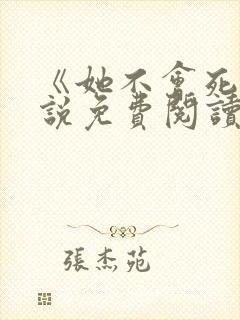 《她不會死
說免費閱讀
張杰苑